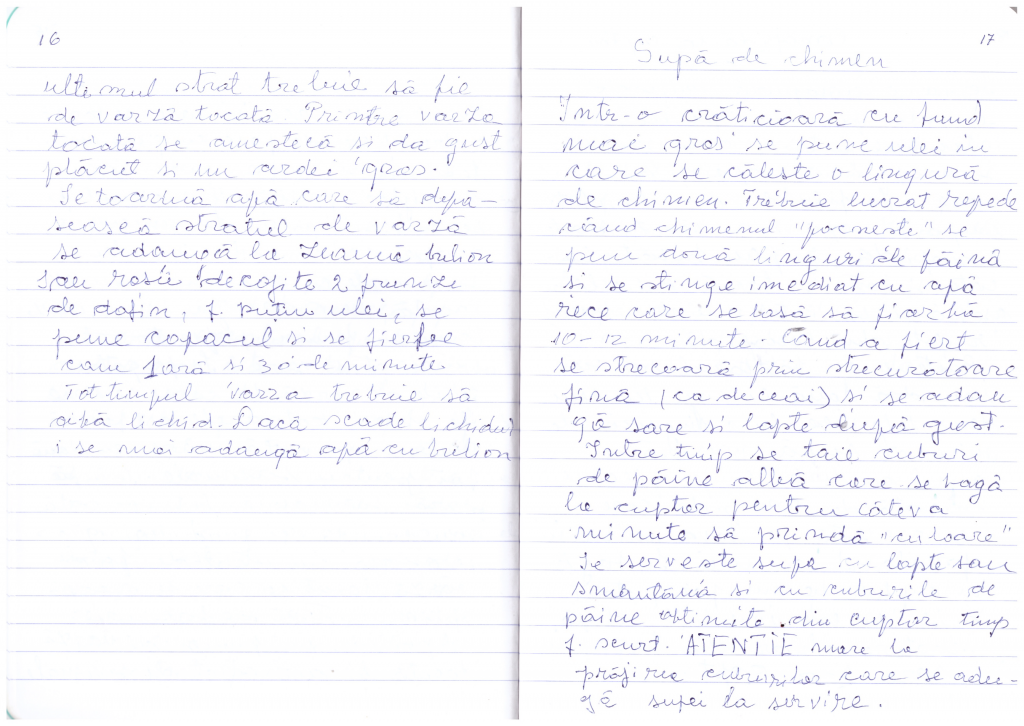 16
ultimul strat trebuie să fie
de varză tocată. Printre varza
tocată se amestecă si da gust
plăcut si un ardei gras.
Se toarnă apă care să depă-
sească stratul de varză
se adaugă la zeamă bulion
sau rosii decojite 2 frunze
de dafin, f. putin ulei, se
pune capacul si se fierbe
cam 1 oră si 30 de minute
Tot timpul varza trebuie să
aibă lichid. Dacă scade lichidul
i se mai adaugă apă cu bulion
17
Supă de chimen
Intr-o crăticioară cu fund
mare gros se pune ulei in
care se căleste o lingură
de chimen. Trebuie lucrat repede
când chimenul "pocneste" se
pun două linguri de făină
si se stinge imediat cu apă
rece care se lasă să fiarbă
10-12 minute. Cand a fiert
se strecoară prin strecurătoare
fină (ca de ceai) si se adau
gă sare si lapte după gust.
Intre timp se taie cuburi
de pâine albă care se bagă
la cuptor pentru câteva
minute să prindă "culoare"
Se serveste supa cu lapte sau
smântână si cu cuburile de
pâine obtinute din cuptor timp
f. scurt. ATENTIE mare la
prăjirea cuburilor care se adau-
gă supei la servire.